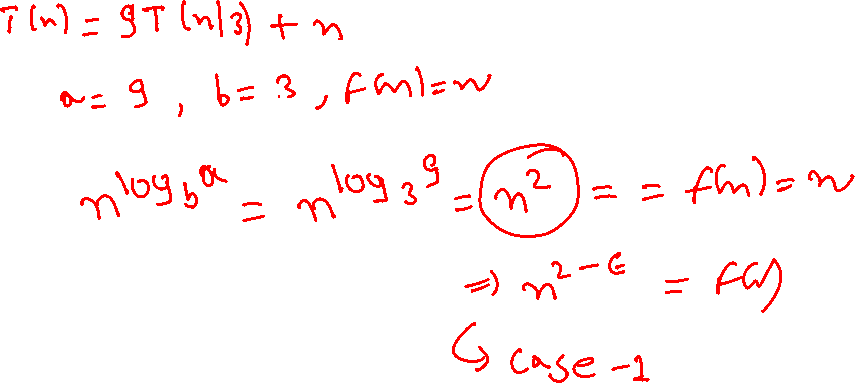 T(n) = 9T(n/3) + n
a = 9, b = 3, f(n) = n
n^{log_b a} = n^{log_3 9} = n^2 = = f(n) = n
⇒ n^{2-ϵ} = f(n)
↳ case-1